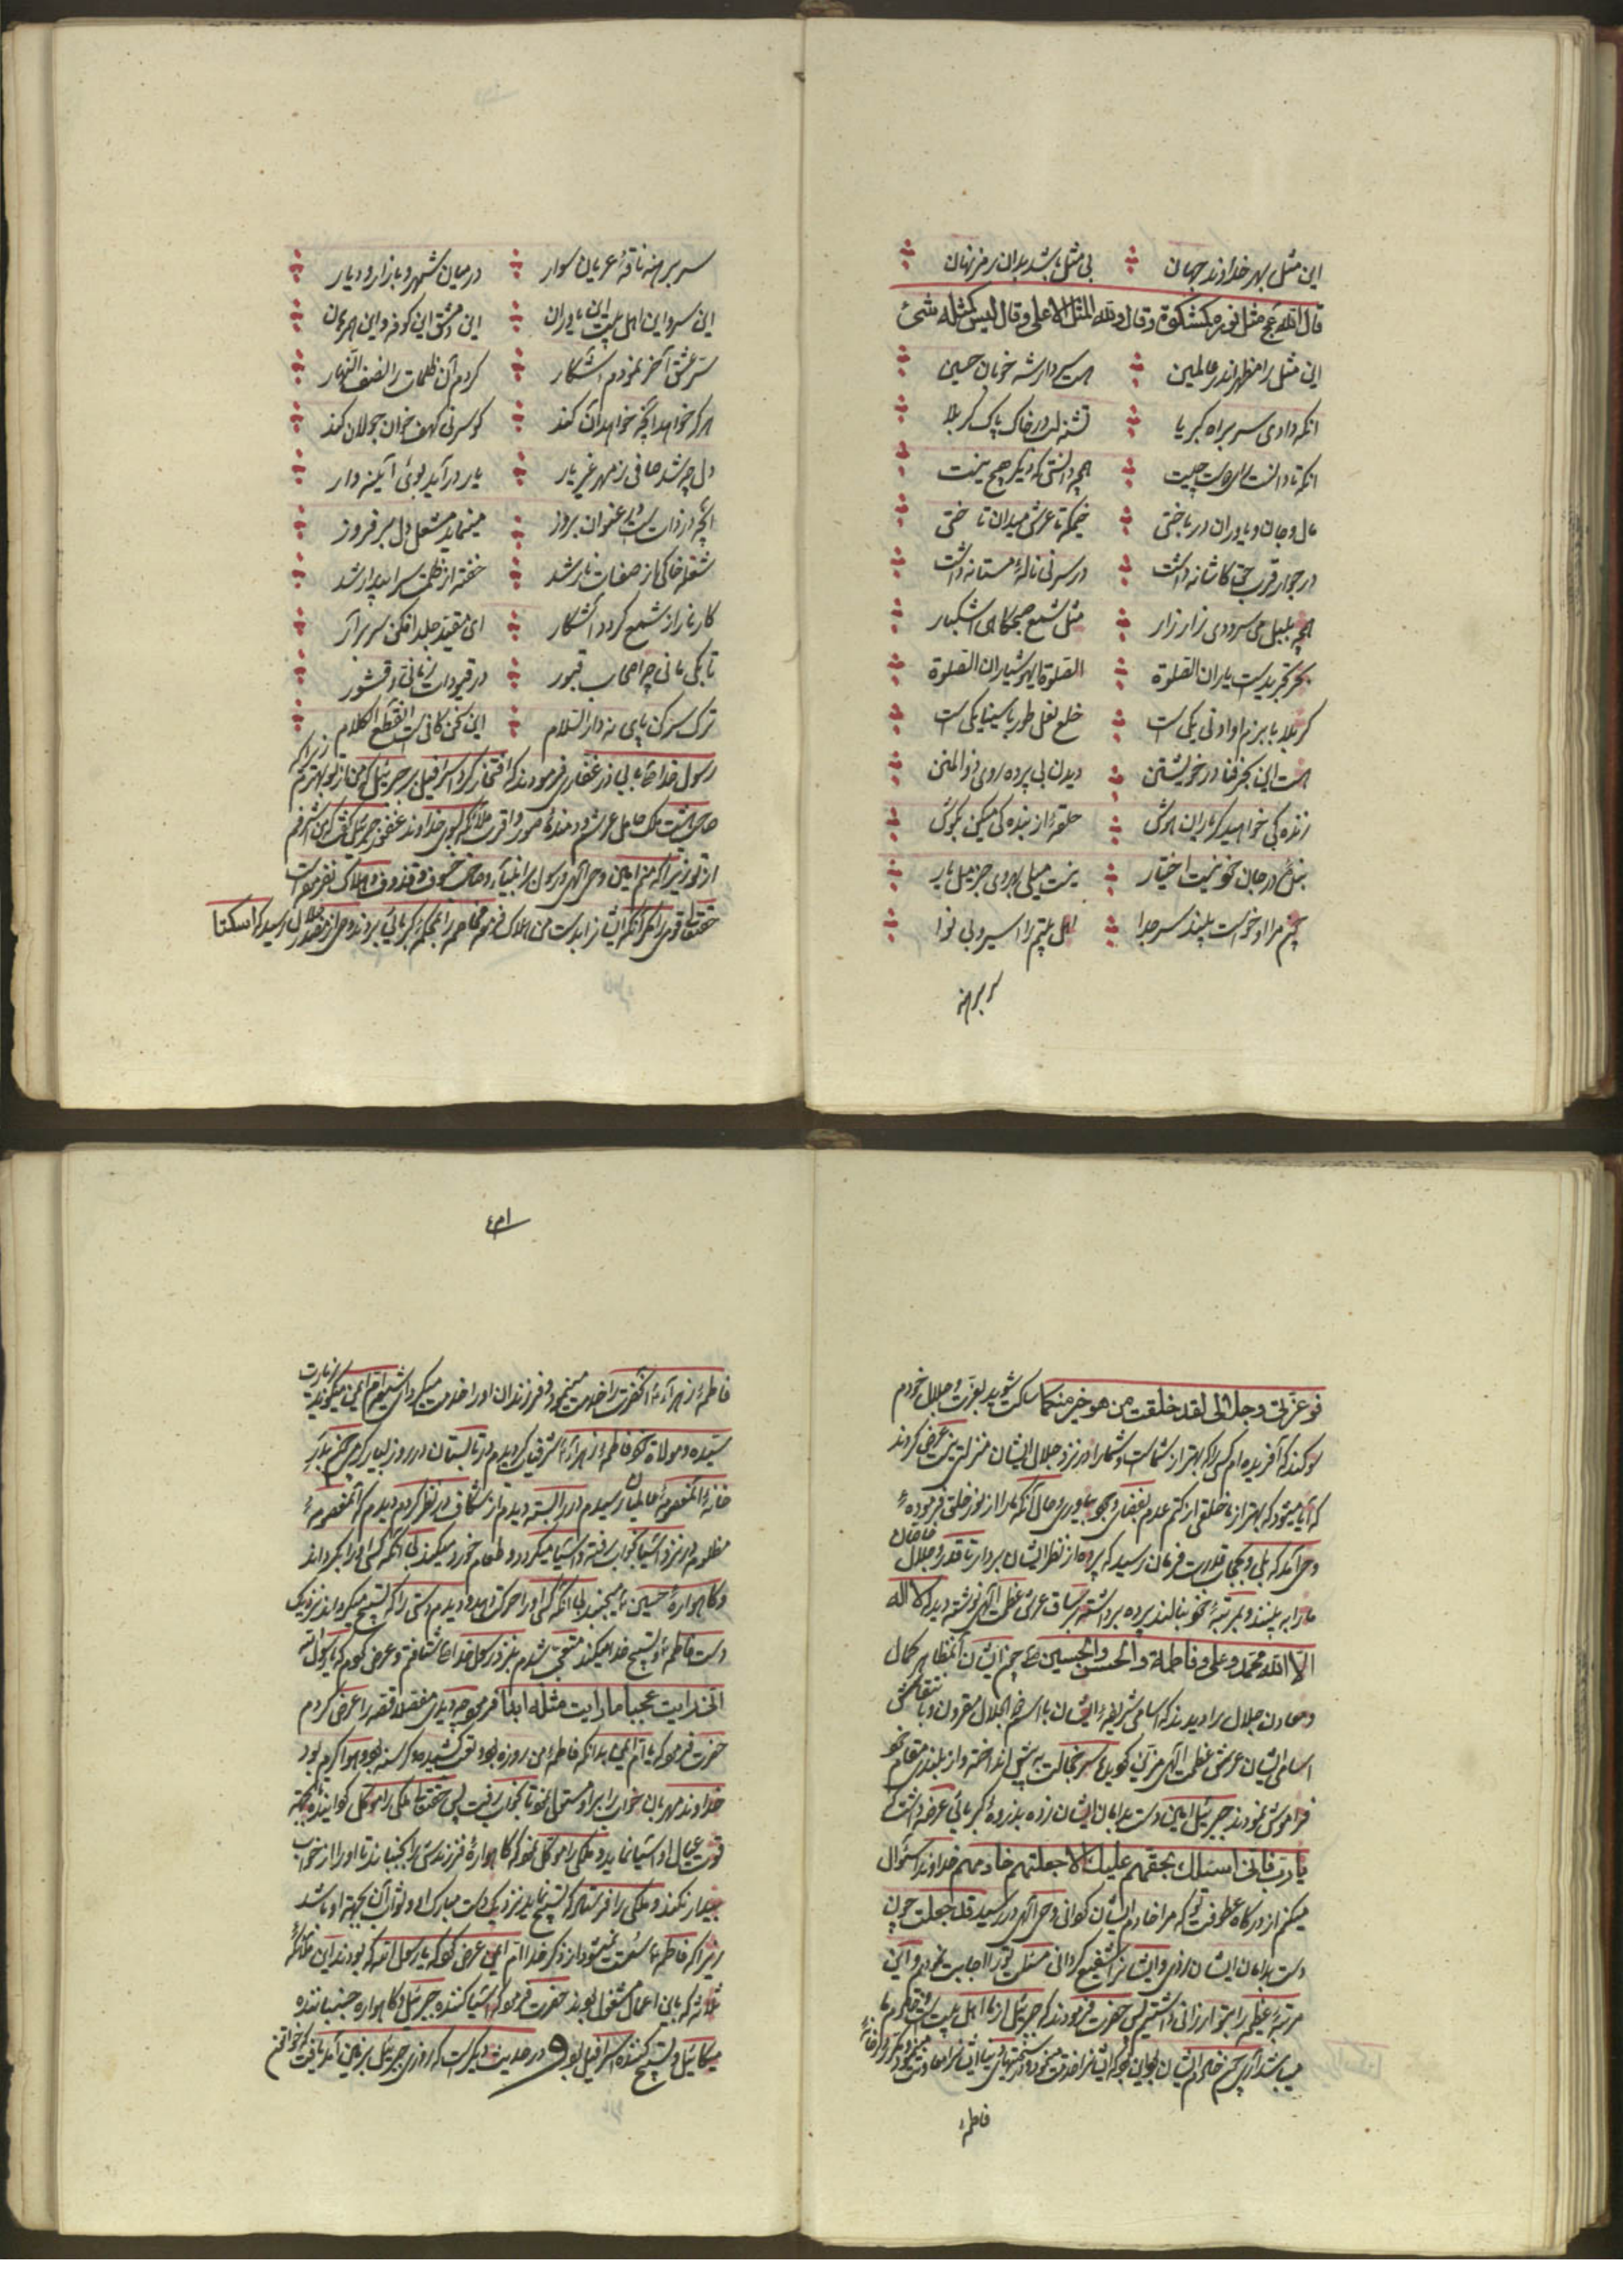 این مثل بهر خداوند جهان بی مثل باشد بدان رمز نهان
قال الله عج مثل نوره کمشکوة وقال ولله المثل الاعلی وقال لیس کمثله شئ
این مثل را مظهر اندر عالمین هست سردار شه خوبان حسین
انکه دادی سر براه کبریا تشنه لب در خاک پاک کربلا
انکه تا دانست چیست همچه دانستی که دیگر هیچ نیست
مال و جان و یاوران در باختی خیمکه تا عرش میدان تاختی
در جوار قرب حق کاشانه داشت در سر نی نالهٔ مستانه داشت
همچه بلبل می سرودی زار زار مثل شمع صبحکاهی اشکبار
بحر تجرید است یاران الصلوة الصلوة ایهوشیاران الصلوة
کربلا با بزم او ادنی یکی است خلع نعل طور با سینا یکی است
هست این بحر فنا در خویشتن دیدن بی پرده روی ذوالمنن
زنده کی خواهید کر یاران هوش حلقهٔ از بنده کی میکن بکوش
در جان خود نیست اختیار نیست میلی بروی جز میل یار
چون مرا او خواست بیند سر جدا اهل بیتم را اسیر و بی نوا
سر برهنه
سر برهنه ناقهٔ عریان سوار در میان شهر و بازار و دیار
این سر و این اهل بیت این یاوران این دمشق این کوفه و این همرهان
سرّ عشق آخر نمودم آشکار کردم آن ظلمات را نصف النهار
هرکه خواهد آنچه خواهد آن کند کو سر نی کهف خوان جولان کند
دل چه شد صافی ز مهر غیر یار یار در آید بوی آئینه وار
آنچه در ذات است عنوان بروز مینماید مشعل دل بر فروز
شعله خاکی از صفات نار شد خفته از ظلمت سرا بیدار شد
کار نار از شمع کردد آشکار ای مقید جلد افکن سر برآر
تا بکی مانی چه اصحاب قبور در قیودات و قشور
ترک سر کن پای نه دار السلام این سخن کافی است انقطع الکلام زیرا که
رسول خدا ص به ابی ذر غفاری فرمودند که افتخار کرد اسرافیل بر جبرئیل که من از تو بهترم
صاحب هشت ملک حامل عرش و دمندهٔ صور و اقرب ملائکه بسوی خداوند غفور جبرئیل گفت که من اشرفم
از تو زیرا که منم امین وحی الهی و رسول بر انبیآء و صاحب خسوف و قذوف و هلاک نفرموده است
حقتعالی قومی را مکر آنکه ایشان را بدست من هلاک فرموده رسید که اسکتا
فو عزتی وجلالی لقد خلقت من هو خیر منکما ساکت شوید بعزت و جلال خودم
سوکند که آفریده ام کسی را که بهتر از شماست و شما را در نزد جلال ایشان منزلتی نیست عرض کردند
که آیا میشود که بهتر از ما خلقی از کتم عدم بفضای وجود بیاوری و حال آنکه ما را از نور خلق فرمودهٔ
وحی آمد که بلی و بحجاب قدرت فرمان رسید که پرده از نظر ایشان بردار تا قدر و جلال
ما را به بینند و بمرتبهٔ خود بنالند پرده برداشته بر ساق عرش عظمت الهی نوشته دیدند که لا اله
الا الله محمد و علی و فاطمة والحسن والحسین چون ایشان آنمظاهر کمال
و معادن جلال را دیدند که اسامی شریفهٔ ایشان با اسم ذو الجلال مقرون و
اسامی ایشان عرش عظمت الهی مزین کردیده سر خجالت به پیش انداخته و از بلندی مقام خود
فراموش نمودند جبرئیل امین دست بدامان ایشان زده بذروهٔ کبریائی عرضه داشت که
یا رب فانی اسئلک بحقهم علیک الا جعلتنی خادمهم خداوندا سئوال
میکنم از درکاه عطوفت تو که مرا خادم ایشان کردانی وحی الهی در رسید قد جعلت چون
دست بدامان ایشان زدی و ایشان را شفیع کردانی مسئلت تو را اجابت نمودیم و این
مرتبهٔ عظیم را بتو ارزانی داشتیم پس حضرت فرمودند که جبرئیل از ما اهل بیت است و خادم ما
میباشد
فاطمهٔ
فاطمهٔ زهرآء آنحضرت را خدمت مینمود و فرزندان او را خدمت میکردام ایمن میکوید
سیده و مولاة خود فاطمهٔ زهرآء مشرف کردیدم در تابستان در روز بسیار کرمی چون بدر
خانهٔ آنمعصومهٔ عالمیان رسیدم در را بسته دیدم از شکاف در نظر کردم دیدم که آنمعصومهٔ
مظلومه در نزد آسیا بخواب رفته و آسیا میکردد و طعام خورد میکند بی آنکه کسی او را بکرداند
و کاهوارهٔ حسین میجنبد بی آنکه کسی او را حرکت دهد و دیدم دستی را که تسبیح میکرداند نزدیک
دست فاطمه و تسبیح خدا میکند متعجب شدم بنزد رسول خدا ص شتافتم و عرض کردم که یا رسول الله
انی رایت عجبا ما رایت مثله ابدا فرمود چه دیدی مفصلا قصه را عرض کردم
حضرت فرمود که یا ام ایمن بدانکه فاطمهٔ من روزه بود و تعب کشیده و کرسنه بود و هوا کرم بود
خداوند مهربان خواب را بر او مستولی نمود تا بخواب رفت پس حقتعالی ملکی را موکل کردانیده بجهة
قوت عیال او آسیا نماید و ملکی را موکل نمود که کاهوارهٔ فرزندش را بجنباند تا او را از خواب
بیدار نکند و ملکی را فرستاد که تسبیح نماید نزدیک دست مبارک او و ثواب آن بجهة او باشد
زیرا که فاطمه سئمت نمیشود از ذکر خدا ام ایمن عرض کرد که یا رسول الله که بودند این ملائکهٔ
ثلاثه که باین اعمال مشغول بودند حضرت فرمود که آسیا کننده جبرئیل و کاهواره جنباننده
میکائیل و تسبیح کننده اسرافیل بود و در حدیث دیکر است که روزی جبرئیل بر زمین آمد